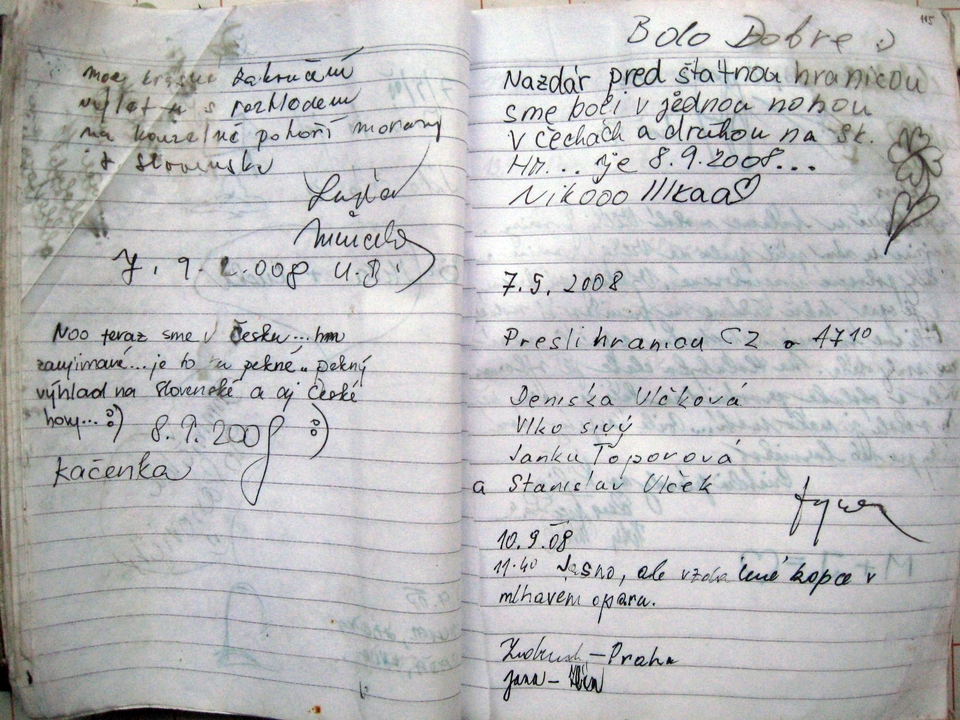 moc krásné zakončení
výlet u s rozhledem
na kouzelné pohoří moravy
i Slovenska
7. 9. 2008 U.B.
Noo teraz sme v Česku...hm
zaujímavé...je to tu pekné.. pekný
výhlad na slovenské a aj české
hory... :)
8.9.2008 :)
Kačenka
115
Bolo Dobre :)
Nazdár pred štátnou hranicou
sme boli v jednou nohou
v čechách a druhou na Sk.
Hm... je 8.9.2008...
Nikooo IIIkaa♡
7.9. 2008
Prešli hranicu CZ o 17 10
Deniska Vlčková
Vlko sivý
Janku Toporová
a Stanislav Vlček
10.9.08
11.40 Jasno, ale vzdálené kopce v
mlhavém oparu.
– Praha
Jana –